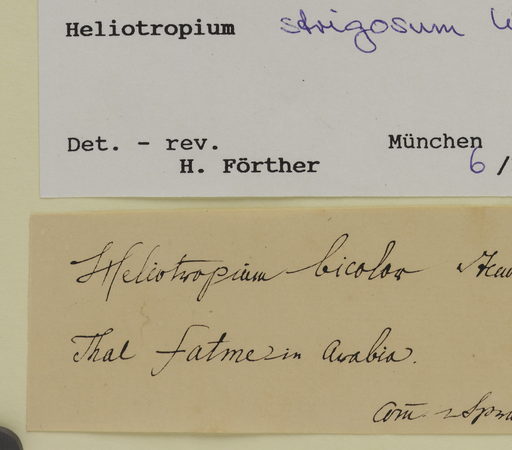 Heliotropium strigosum
Det. - rev.
München
H. Förther
6/
Heliotropium bicolor
Thal Fatme in Arabia.